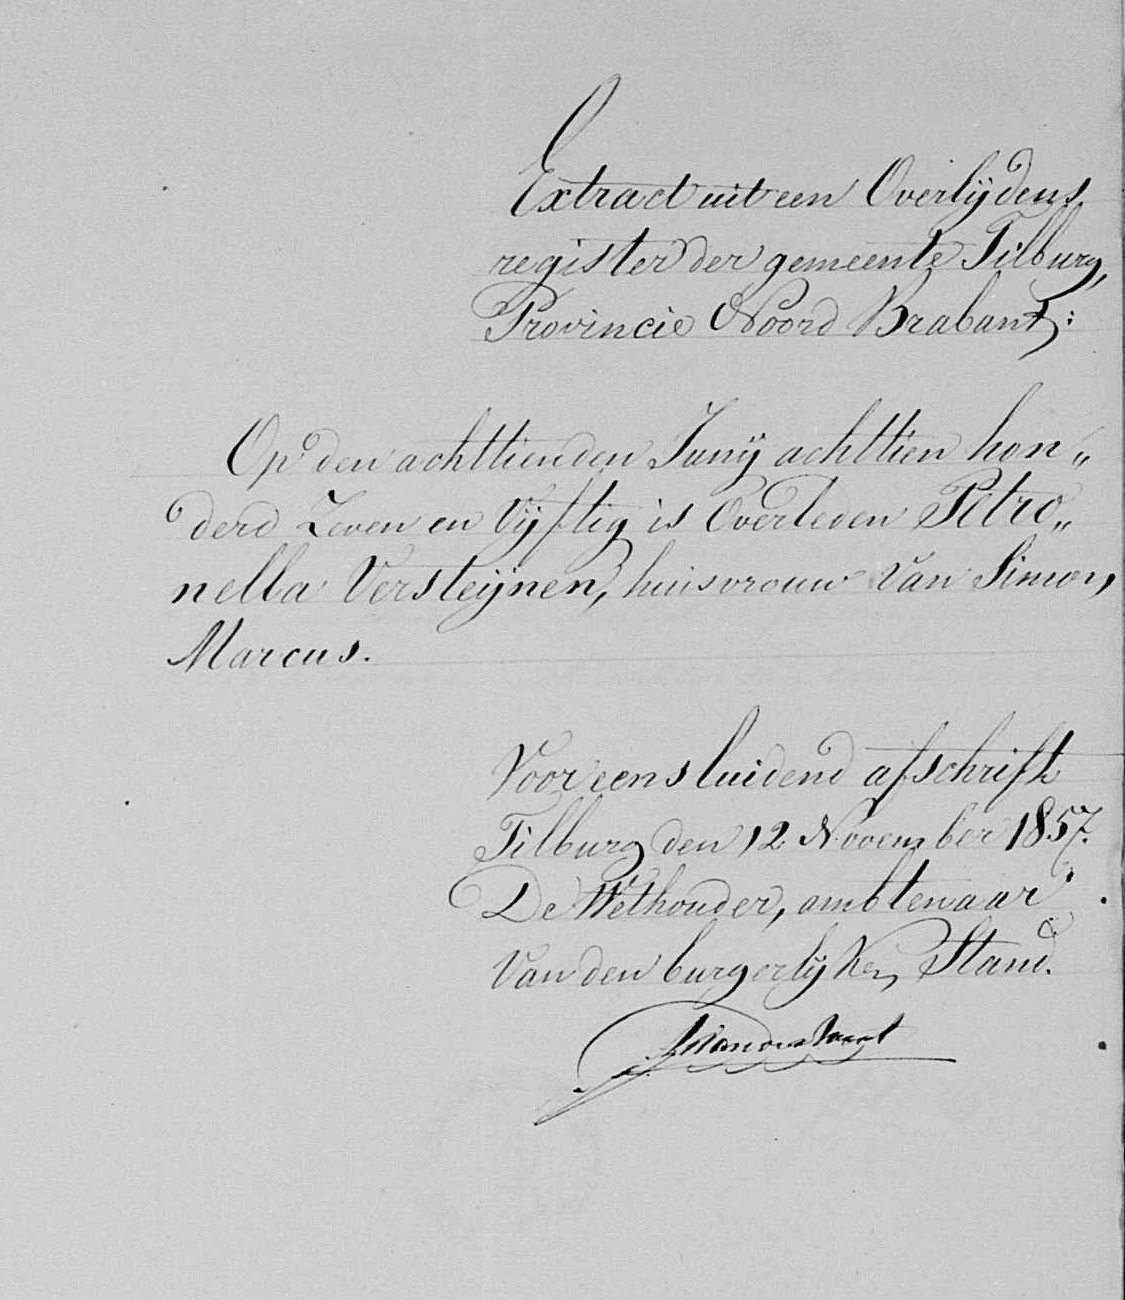 Extract uit een Overlijdens
register der gemeente Tilburg,
Provincie Noord Brabant:
Op den achttienden Junij achttien hon„
derd Zeven en Vijftig is Overleden Petro„
nella Versteijnen, huisvrouw van Simon,
Marcus.
Voor eensluidend afschrift
Tilburg den 12 November 1857.
De Wethouder, ambtenaar
Van den burgerlijken Stand.